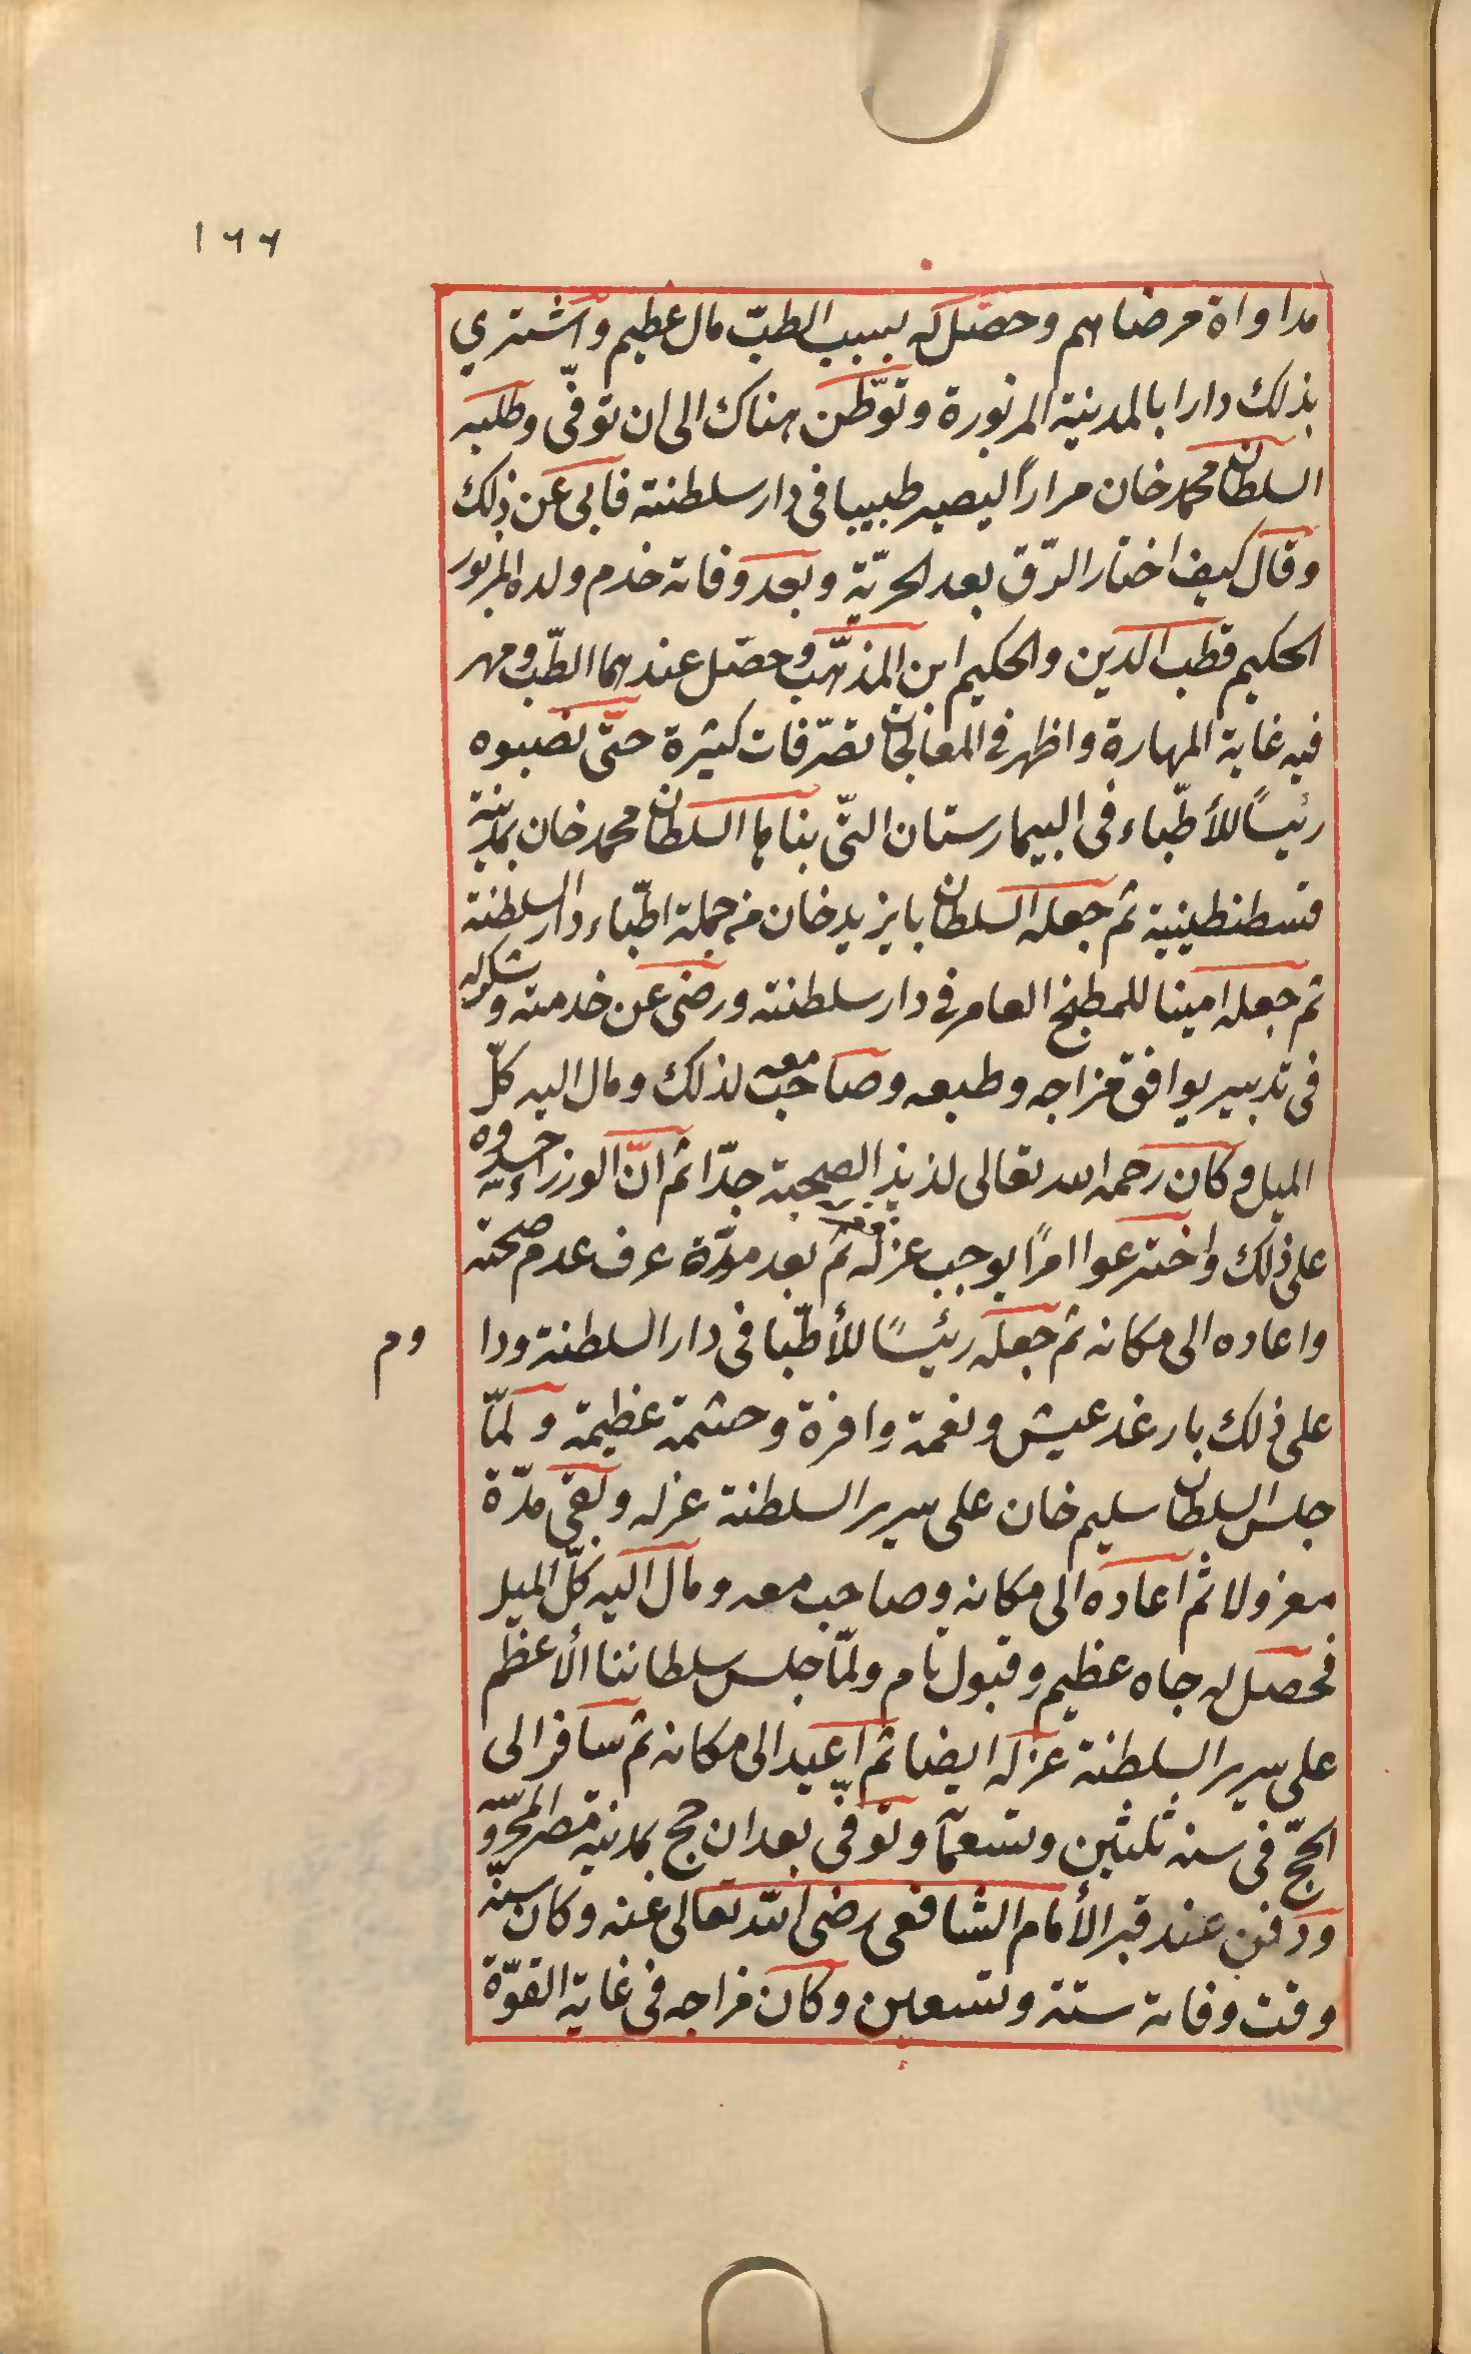 ١٦٦
مداواة مرضاهم وحصّل له بسبب الطبّ مال عظيم واشتري
بذلك دارا بالمدينة المزبورة وتوّطن هناك الى ان توفّى وطلبه
السلطان محمد خان مراراً ليصير طبيبا فى دار سلطنته فابى عن ذلك
وقال كيف اختار الرّق بعد الحريّة وبعد وفاته خدم ولده المزبور
الحكيم قطب الدين والحكيم ابن المذهّب وحصّل عندهما الطّب ومهر
فيه غاية المهارة واظهر فى المعالجات تصرّفات كثيرة حتّى نصبوه
رئيسًا للأطّباء فى البيمارستان التّى بناها السلطان محمد خان بمدينة
قسطنطينية ثم جعله السلطان بايزيد خان من جملة اطّباء دار السلطنة
ثم جعله امينا للمطبخ العامر فى دار سلطنته ورضى عن خدمته وشكر له
فى تدبير يوافق مزاجه وطبعه وصاحب معه لذلك ومال اليه كلّ
الميل وكان رحمه الله تعالى لذيذ الصحبة جدّا ثم انّ الوزراء حسدوه
على ذلك واخترعوا امرًا يوجب عزله فعزله ثم بعد مدّة عرف عدم صحته
واعاده الى مكانه ثم جعله رئيسًا للأطّبا فى دار السلطنة ودا
وم
على ذلك بارغد عيش ونعمة وافرة وحشمة عظيمة ولمّا
جلس السلطان سليم خان على سرير السلطنة عزله وبقى مدّة
معزولا ثم اعاده الى مكانه وصاحب معه ومال اليه كلّ الميل
فحصل له جاه عظيم وقبول تام ولمّا جلس سلطاننا الأعظم
على سرير السلطنة عزله ايضا ثم اعيد الى مكانه ثم سافر الى
الحجّ فى سنه ثلثين وتسعمآ وتوفّى بعد ان حج بمدينه مصر المحروسه
ودفن عند قبر الأمام الشافعى رضى الله تعالى عنه وكان سنّه
وقت وفاته ستة وتسعين وكان مزاجه فى غاية القوّة